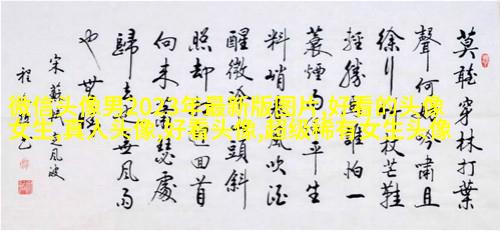 莫聽穿林打葉
聲何妨吟嘯且
徐行竹杖芒鞋
輕勝馬誰怕一
蓑煙雨任平生
料峭春風吹酒
醒微冷山頭斜
照却相迎回首
向來蕭瑟處
歸去也無風雨
也無晴
宋蘇軾定風波
微信头像男2023年最新版图片,好看的头像
女生,真人头像,好看头像,超级稀有女生头像